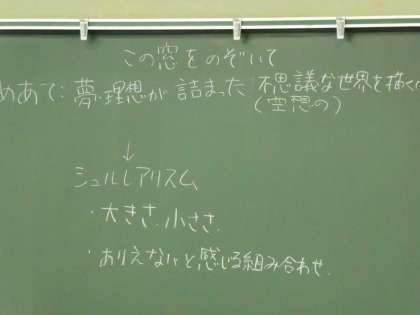 この窓をのぞいて
めあて:夢・理想が詰まった不思議な世界を描く
(空想の)
↓
シュルレアリスム
・大きさ、小ささ
・ありえないと感じる組み合わせ